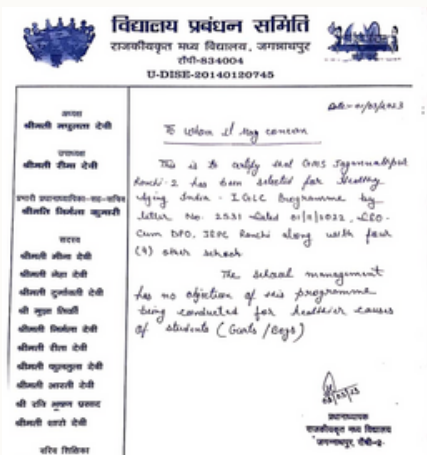 विद्यालय प्रबंधन समिति
राजकीयकृत मध्य विद्यालय, जगन्नाथपुर
राँची-834004
U-DISE-20140120745
अध्यक्ष
श्रीमती मधुलता देवी
उपाध्यक्ष
श्रीमती रीमा देवी
प्रभारी प्रधानाध्यापिका-सह-सचिव
श्रीमति निर्मला कुमारी
सदस्य
श्रीमती मीना देवी
श्रीमती नेहा देवी
श्रीमती दुर्गावती देवी
श्री मुन्ना तिर्की
श्रीमती निर्मला देवी
श्रीमती रीता देवी
श्रीमती फुलतुला देवी
श्रीमती आरती देवी
श्री रवि भूषण प्रसाद
श्रीमती शारो देवी
वरिय शिक्षिका
Date- 01/03/2023
To whom it may concern
This is to certify that GMS Jagannathpur
Ranchi-2 has been selected for Healthy
Aging India - IGLC Programme by
letter No. 2531 dated 01/11/2022, DEO-
Cum DPO, JEPC Ranchi along with four
(4) other school.
The school management
has no objection of this programme
being conducted for healthier causes
of students (Girls/Boys)
01/03/23
प्रधानाध्यापक
राजकीयकृत मध्य विद्यालय
जगन्नाथपुर, राँची-2